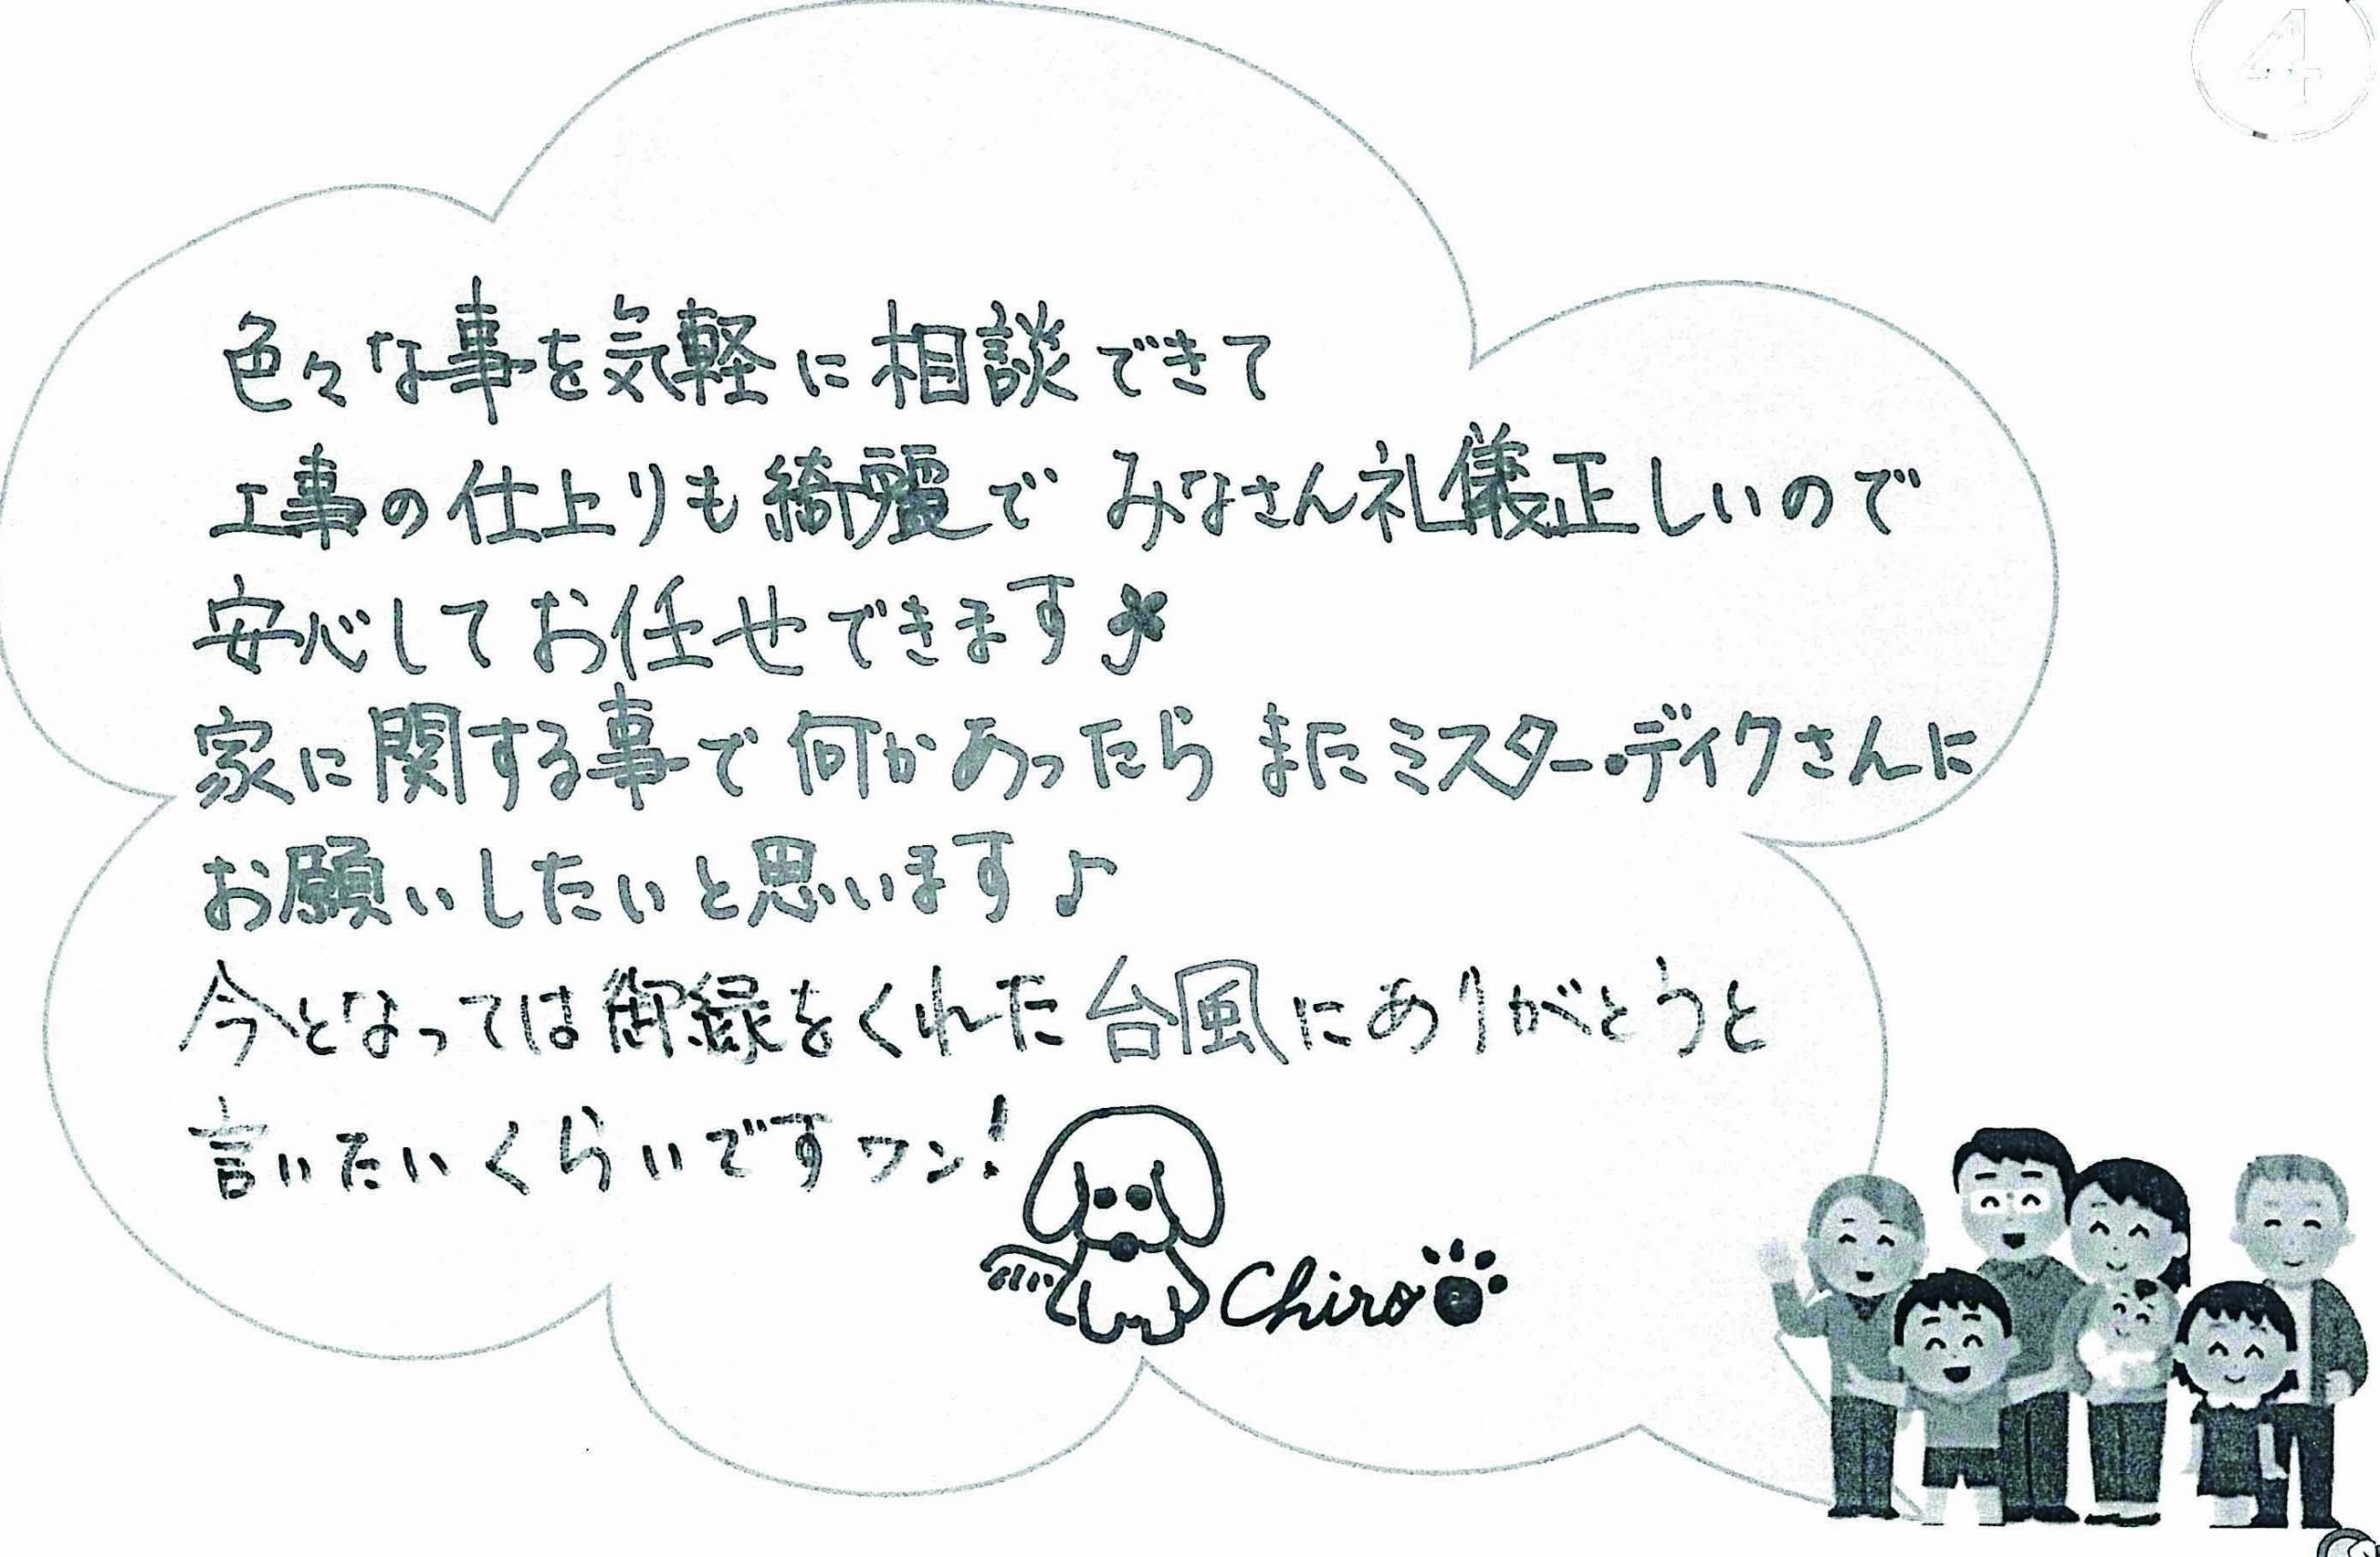 ④
色々な事を気軽に相談できて
工事の仕上りも綺麗で みなさん礼儀正しいので
安心してお任せできます
家に関する事で何かあったら またミスター・ディクさんに
お願いしたいと思います♪
今となっては御縁をくれた台風にありがとうと
言いたいくらいですワン!
Chiro